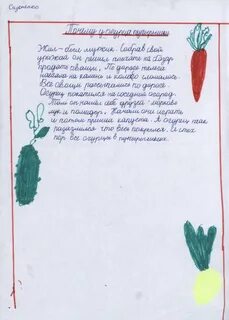 Почему у огурца пупырышки
Жил-был мужик. Собрав свой
урожай он решил поехать на базар
продать овощи. По дороге телега
наехала на камень и колесо сломалось.
Все овощи рассыпались по дороге.
Огурец покатился на соседний огород.
Там он нашёл себе друзей - морковь
лук и помидор. Начали они играть
и потом пришла капуста. А огурец так
разозлился что весь покрылся. И с тех
пор все огурцы в пупырышках.